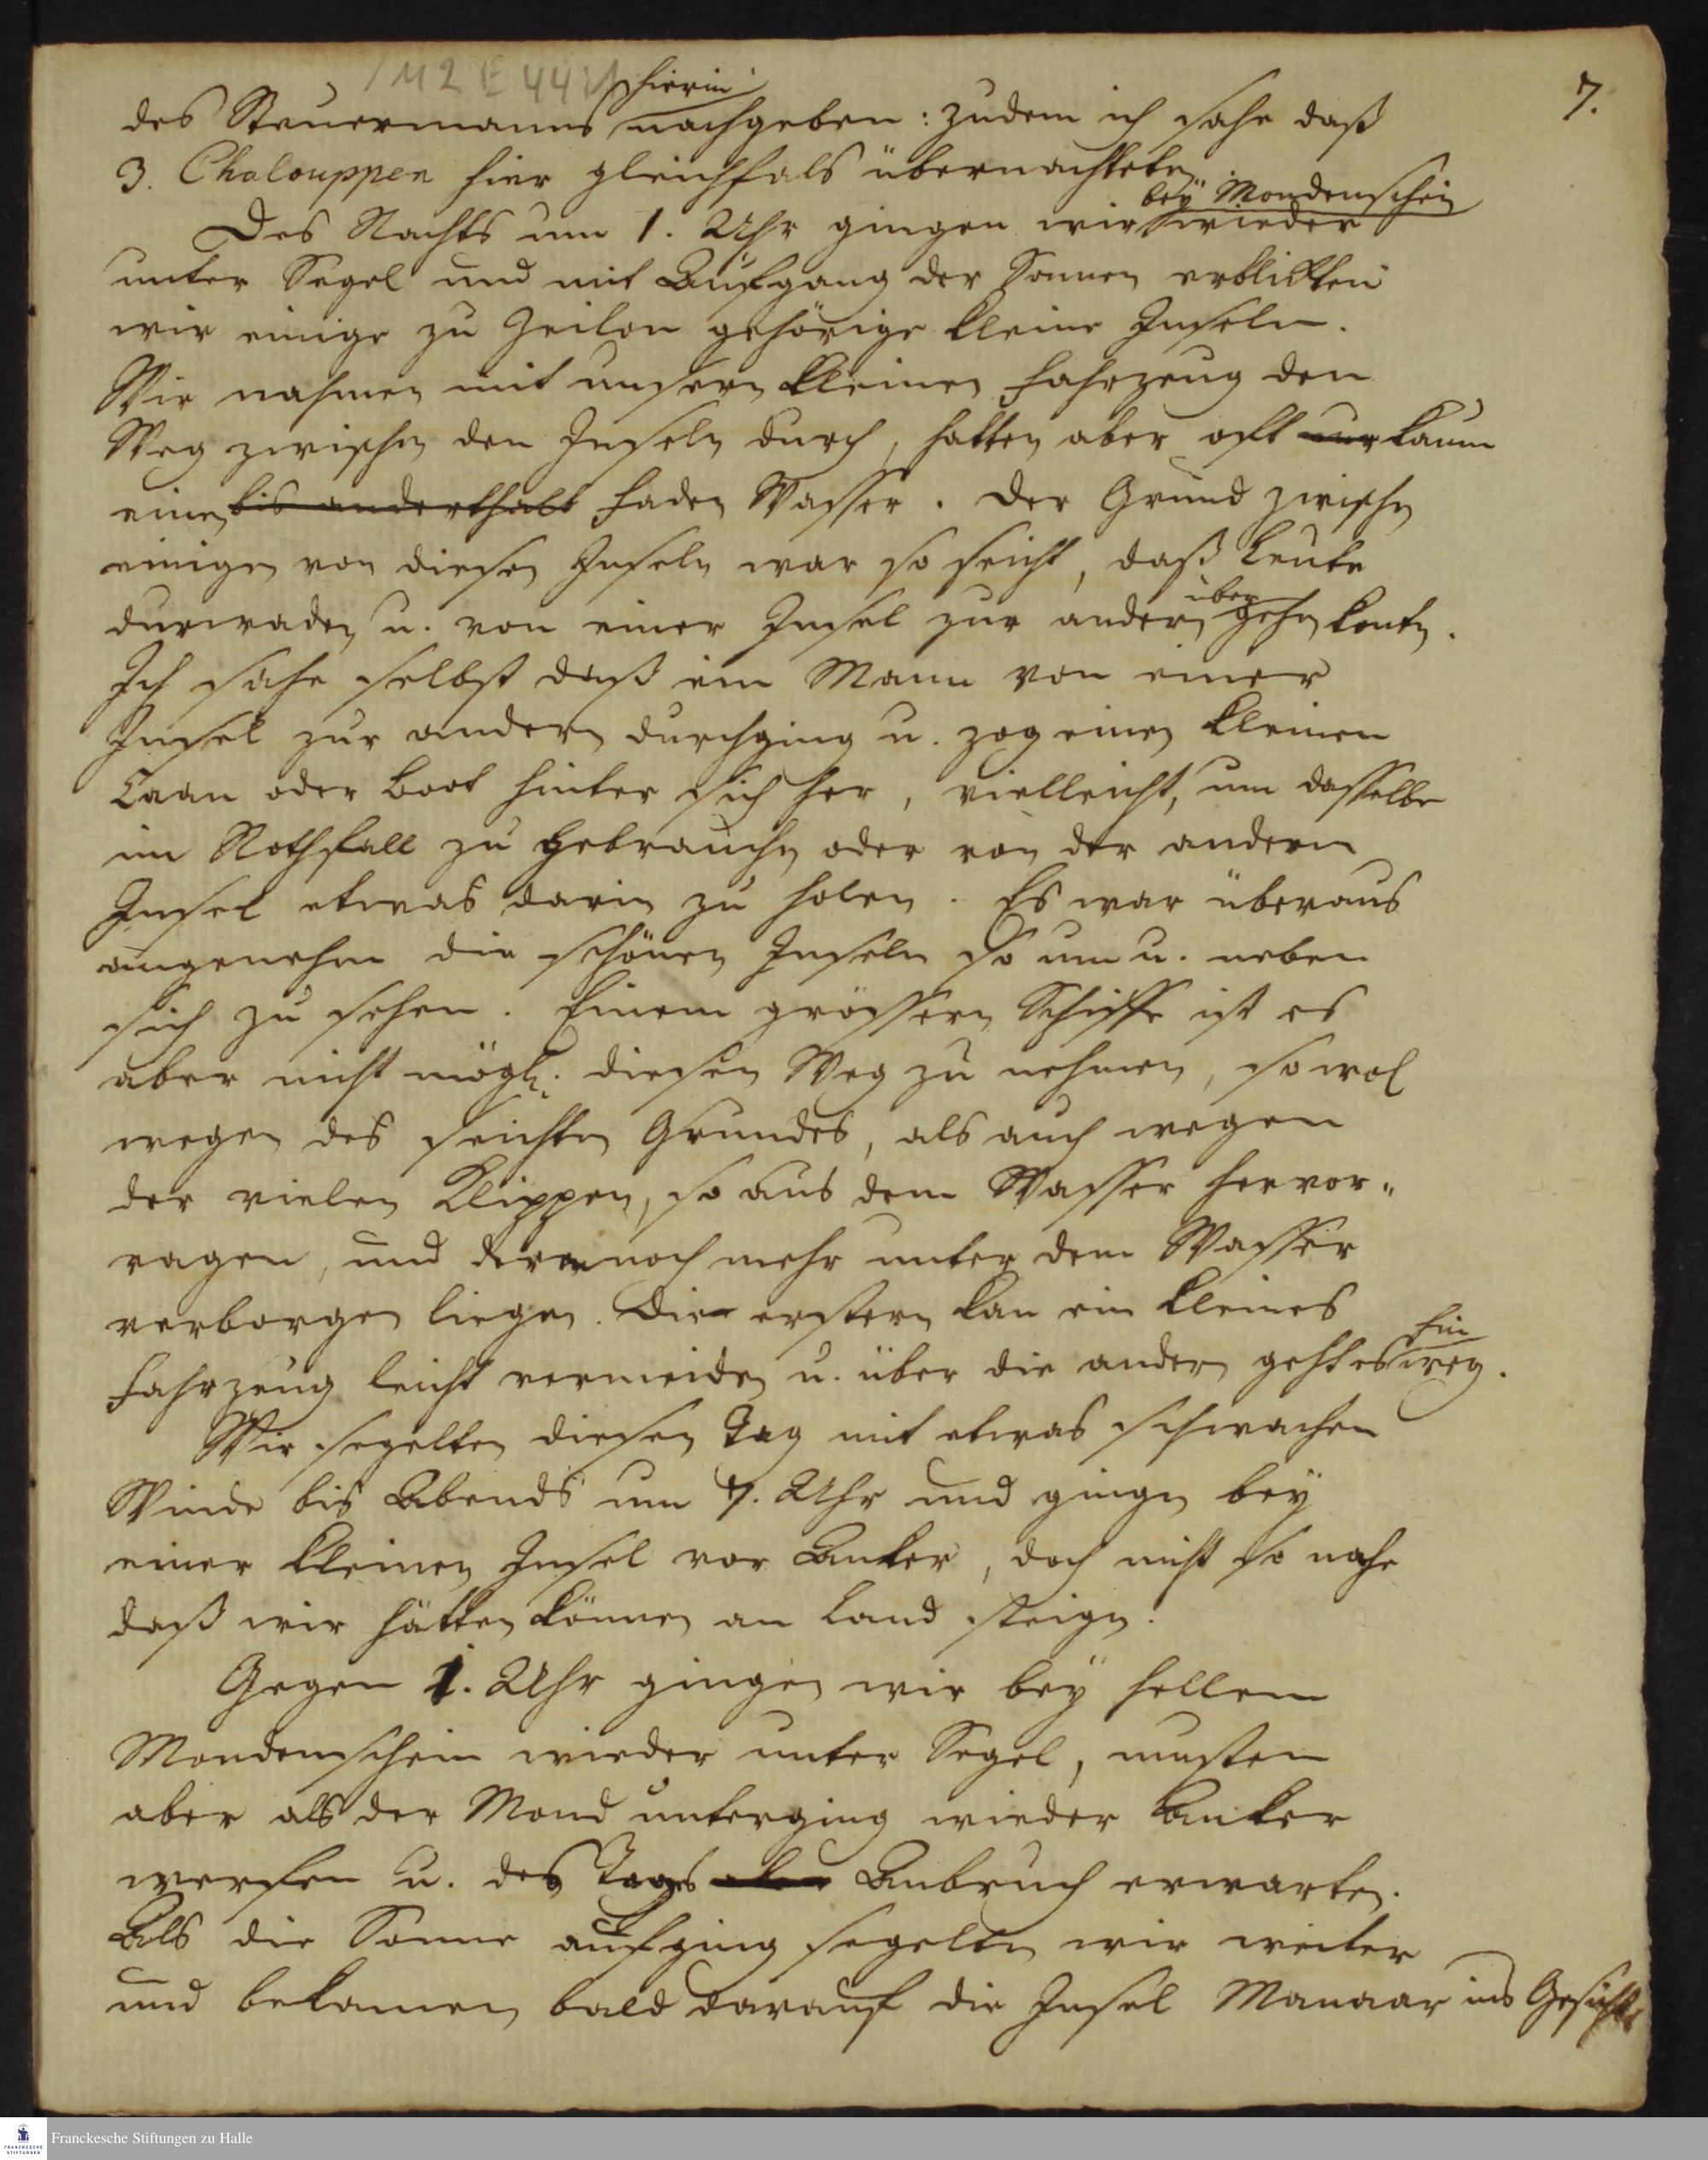 7.
1 M 2 E 44 :
hierin
des Steuermanns nachgeben: zudem ich sahe daß
3. Chalouppen hier gleichfals übernachteten.
bey Mondenschein
Des Nachts um 1. Uhr gingen wir wieder
unter Segel und mit Aufgang der Sonnen erblickten
wir einige zu Zeilon gehörige kleine Inseln.
Wir nahmen mit unsern kleinen Fahrzeug den
Weg zwischen den Inseln durch, hatten aber oft nur kaum
einen bis anderthalb Faden Wasser. Der Grund zwischen
einigen von diesen Inseln war so seicht, daß Leute
über
durwaden u. von einer Insel zur andern gehen konten.
Ich sahe selbst daß ein Mann von einer
Insel zur andern durchging u. zog einen kleinen
Caan oder Boot hinter sich her, vielleicht, um dasselbe
im Nothfall zu gebrauchen oder von der andern
Insel etwas darin zu holen. Es war überaus
angenehm die schönen Inseln so um u. neben
sich zu sehen. Einem grössern Schiffe ist es
aber nicht mögl. diesen Weg zu nehmen, so wol
wegen des seichten Grundes, als auch wegen
der vielen Klippen, so aus dem Wasser hervor„
ragen, und deren noch mehr unter dem Wasser
verborgen liegen. Die erstern kan ein kleines
hin
Fahrzeug leicht vermeiden u. über die andern geht es weg.
Wir segelten diesen Tag mit etwas schwachen
Winde bis Abends um 7. Uhr und gingen bey
einer kleinen Insel vor Anker, doch nicht so nahe
daß wir hätten können an Land steigen.
Gegen 1. Uhr gingen wir bey hellem
Mondenschein wieder unter Segel, musten
aber als der Mond unterging wieder Anker
werfen u. des Tages Anbruch erwarten.
Als die Sonne aufging segelten wir weiter
und bekamen bald darauf die Insel Manaar ins Gesicht
Franckesche Stiftungen zu Halle